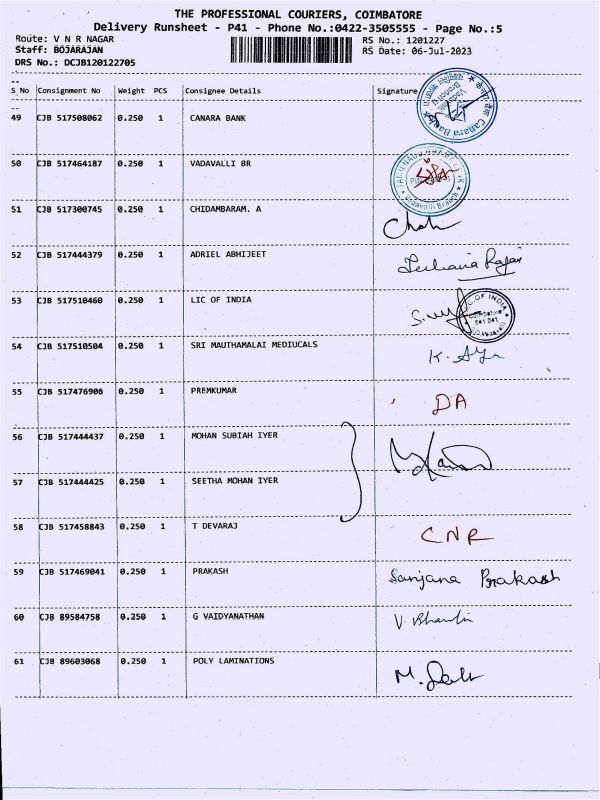 THE PROFESSIONAL COURIERS, COIMBATORE
Delivery Runsheet - P41 - Phone No.:0422-3505555 - Page No.:5
Route: V N R NAGAR RS No.: 1201227
Staff: BOJARAJAN RS Date: 06-Jul-2023
DRS No.: DCJB120122705
S_No Consignment No Weight PCS Consignee Details Signature
49 CJB 517508062 0.250 1 CANARA BANK
50 CJB 517464187 0.250 1 VADAVALLI BR
51 CJB 517300745 0.250 1 CHIDAMBARAM. A
52 CJB 517444379 0.250 1 ADRIEL ABHIJEET
53 CJB 517510460 0.250 1 LIC OF INDIA
54 CJB 517510504 0.250 1 SRI MAUTHAMALAI MEDIUCALS
55 CJB 517476906 0.250 1 PREMKUMAR DA
56 CJB 517444437 0.250 1 MOHAN SUBIAH IYER
57 CJB 517444425 0.250 1 SEETHA MOHAN IYER
58 CJB 517458843 0.250 1 T DEVARAJ CNR
59 CJB 517469041 0.250 1 PRAKASH Sanjana Prakash
60 CJB 89584758 0.250 1 G VAIDYANATHAN
61 CJB 89603068 0.250 1 POLY LAMINATIONS